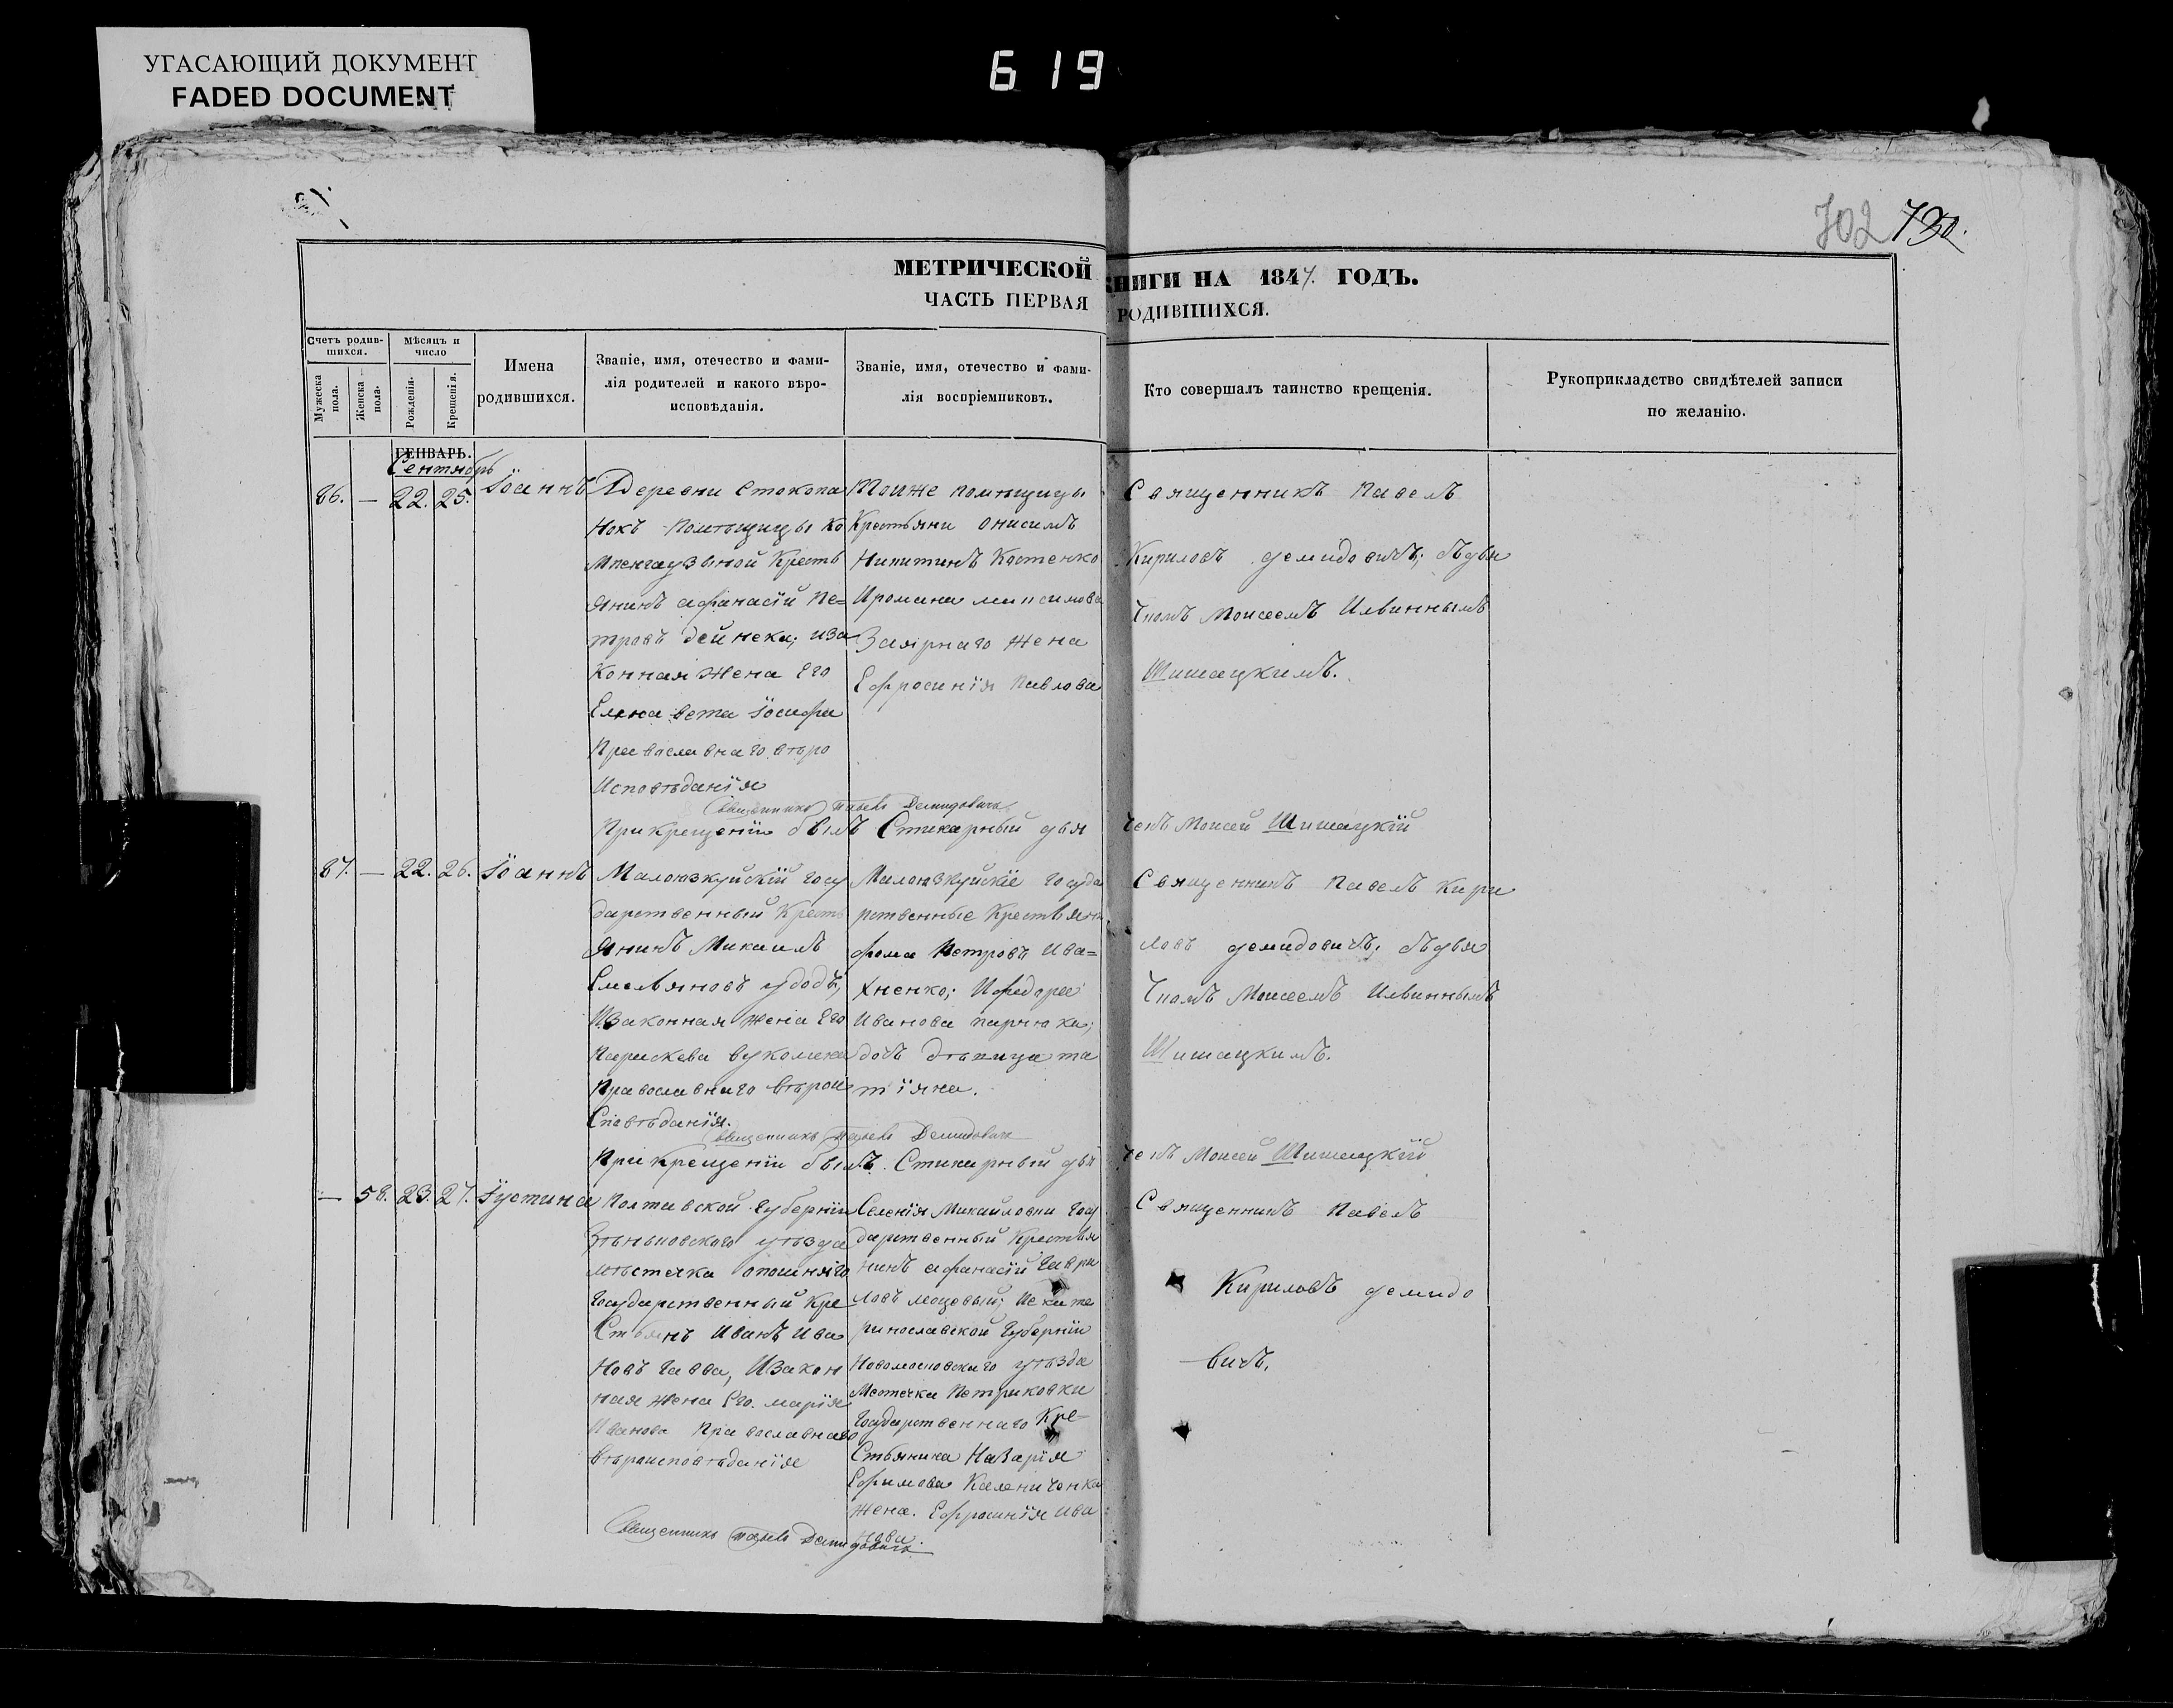 УГАСАЮЩИЙ ДОКУМЕНТ
FADED DOCUMENT
619
702 730.
МЕТРИЧЕСКОЙ КНИГИ НА 1847. ГОДЪ.
ЧАСТЬ ПЕРВАЯ РОДИВШИХСЯ.
Счетъ родив-
шихся.
Мѣсяцъ и
число
Мужеска пола.
Женска пола.
Рожденія.
Крещенія.
Имена
родившихся.
Званіе, имя, отечество и фами-
лія родителей и какого вѣро-
исповѣданія.
Званіе, имя, отечество и фами-
лія воспріемниковъ.
Кто совершалъ таинство крещенія.
Рукоприкладство свидѣтелей записи
по желанію.
ГЕНВАРЬ.
Сентябрь
86. — 22. 25. Іоаннъ
Деревни Стокопа
нокъ помѣщицы Ко
мпенгаузыной Кресть
янинъ афанасій Пе=
тровъ дейнека; иза
конная жена Его
Елисавета Іосифа
Православнаго вѣро
Исповѣданія
Тойже помѣщицы
Крестьяни онисимъ
Никитинъ Костенко
Ировмана максимова
Заярнаго жена
Ефросинія Павлова
Священникъ Павелъ
Кириловъ демидовичъ; съдья
чкомъ Моисеемъ Ильиннымъ
Шишацкимъ.
Священникъ Павелъ Демидовичъ
При крещеніи былъ Стихарный дья
чекъ Моисей Шишацкій
87. — 22. 26. Іоаннъ
Малоюзкуйскій госу
дарственный Кресть
янинъ Михаилъ
Емельяновъ удодъ,
Изаконная жена Его
Параскева вуколова
Православнаго вѣрои
Сповѣданія.
Малоюзкуйскіе госуда
рственные Крестьяни
фома Петровъ Ива=
хненко; Ифедора
Иванова парнюка;
дочь дѣвица та
тіяна.
Священникъ Павелъ Кири
ловъ демидовичъ; съдья
чкомъ Моисеемъ Ильиннымъ
Шишацкимъ.
Священникъ Павелъ Демидовичъ
При крещеніи былъ. Стихарный дья
чекъ Моисей Шишацкій
— 58. 23. 27. Іустина
Полтавской губерніи
Зѣньковского уѣзда
мѣстечка опошняго
Государственный Кре
Стьянъ Иванъ Ива
новъ Гавва, Изакон
ная жена Его. марія
Иванова Православнаго
вѣроисповѣданія
Селенія Михайловки Госу
дарственный Крестья
нинъ афанасій Гаври
ловъ моцовый; И екате
ринославской губерніи
Новомосковскаго уѣзда
Местечка Петриковки
Государственнаго Кре-
Стьянина Назарія
Ефимова Калениченка
жена. Ефросинія Ива
нова.
Священникъ Павелъ
Кириловъ демидо
вичъ.
Священникъ Павелъ Демидовичъ